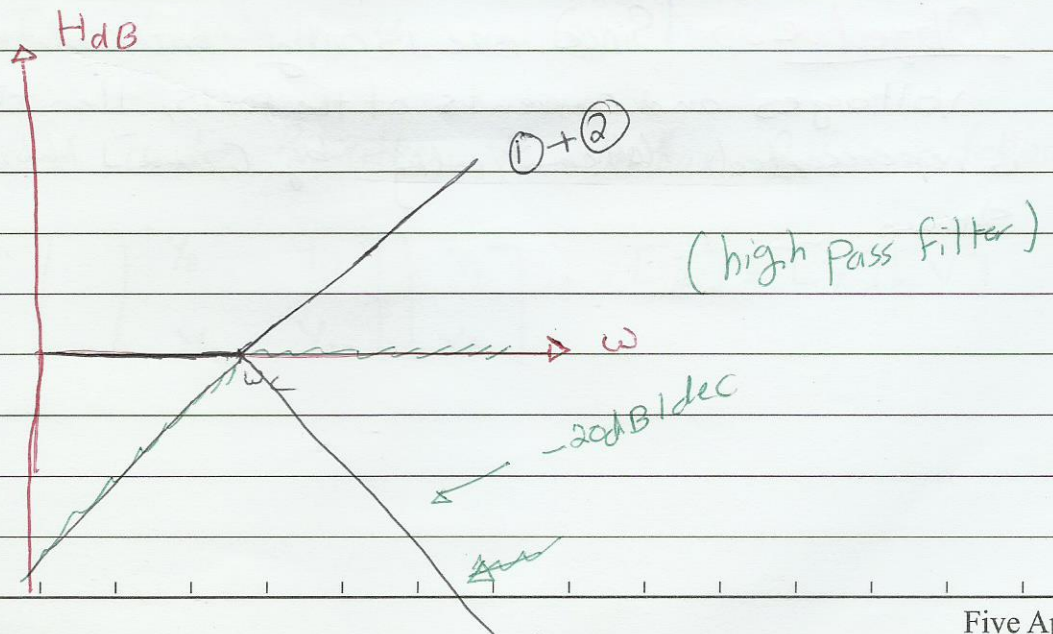 HdB
①+②
(high pass filter)
ω
ωc
-20dB/dec
Five